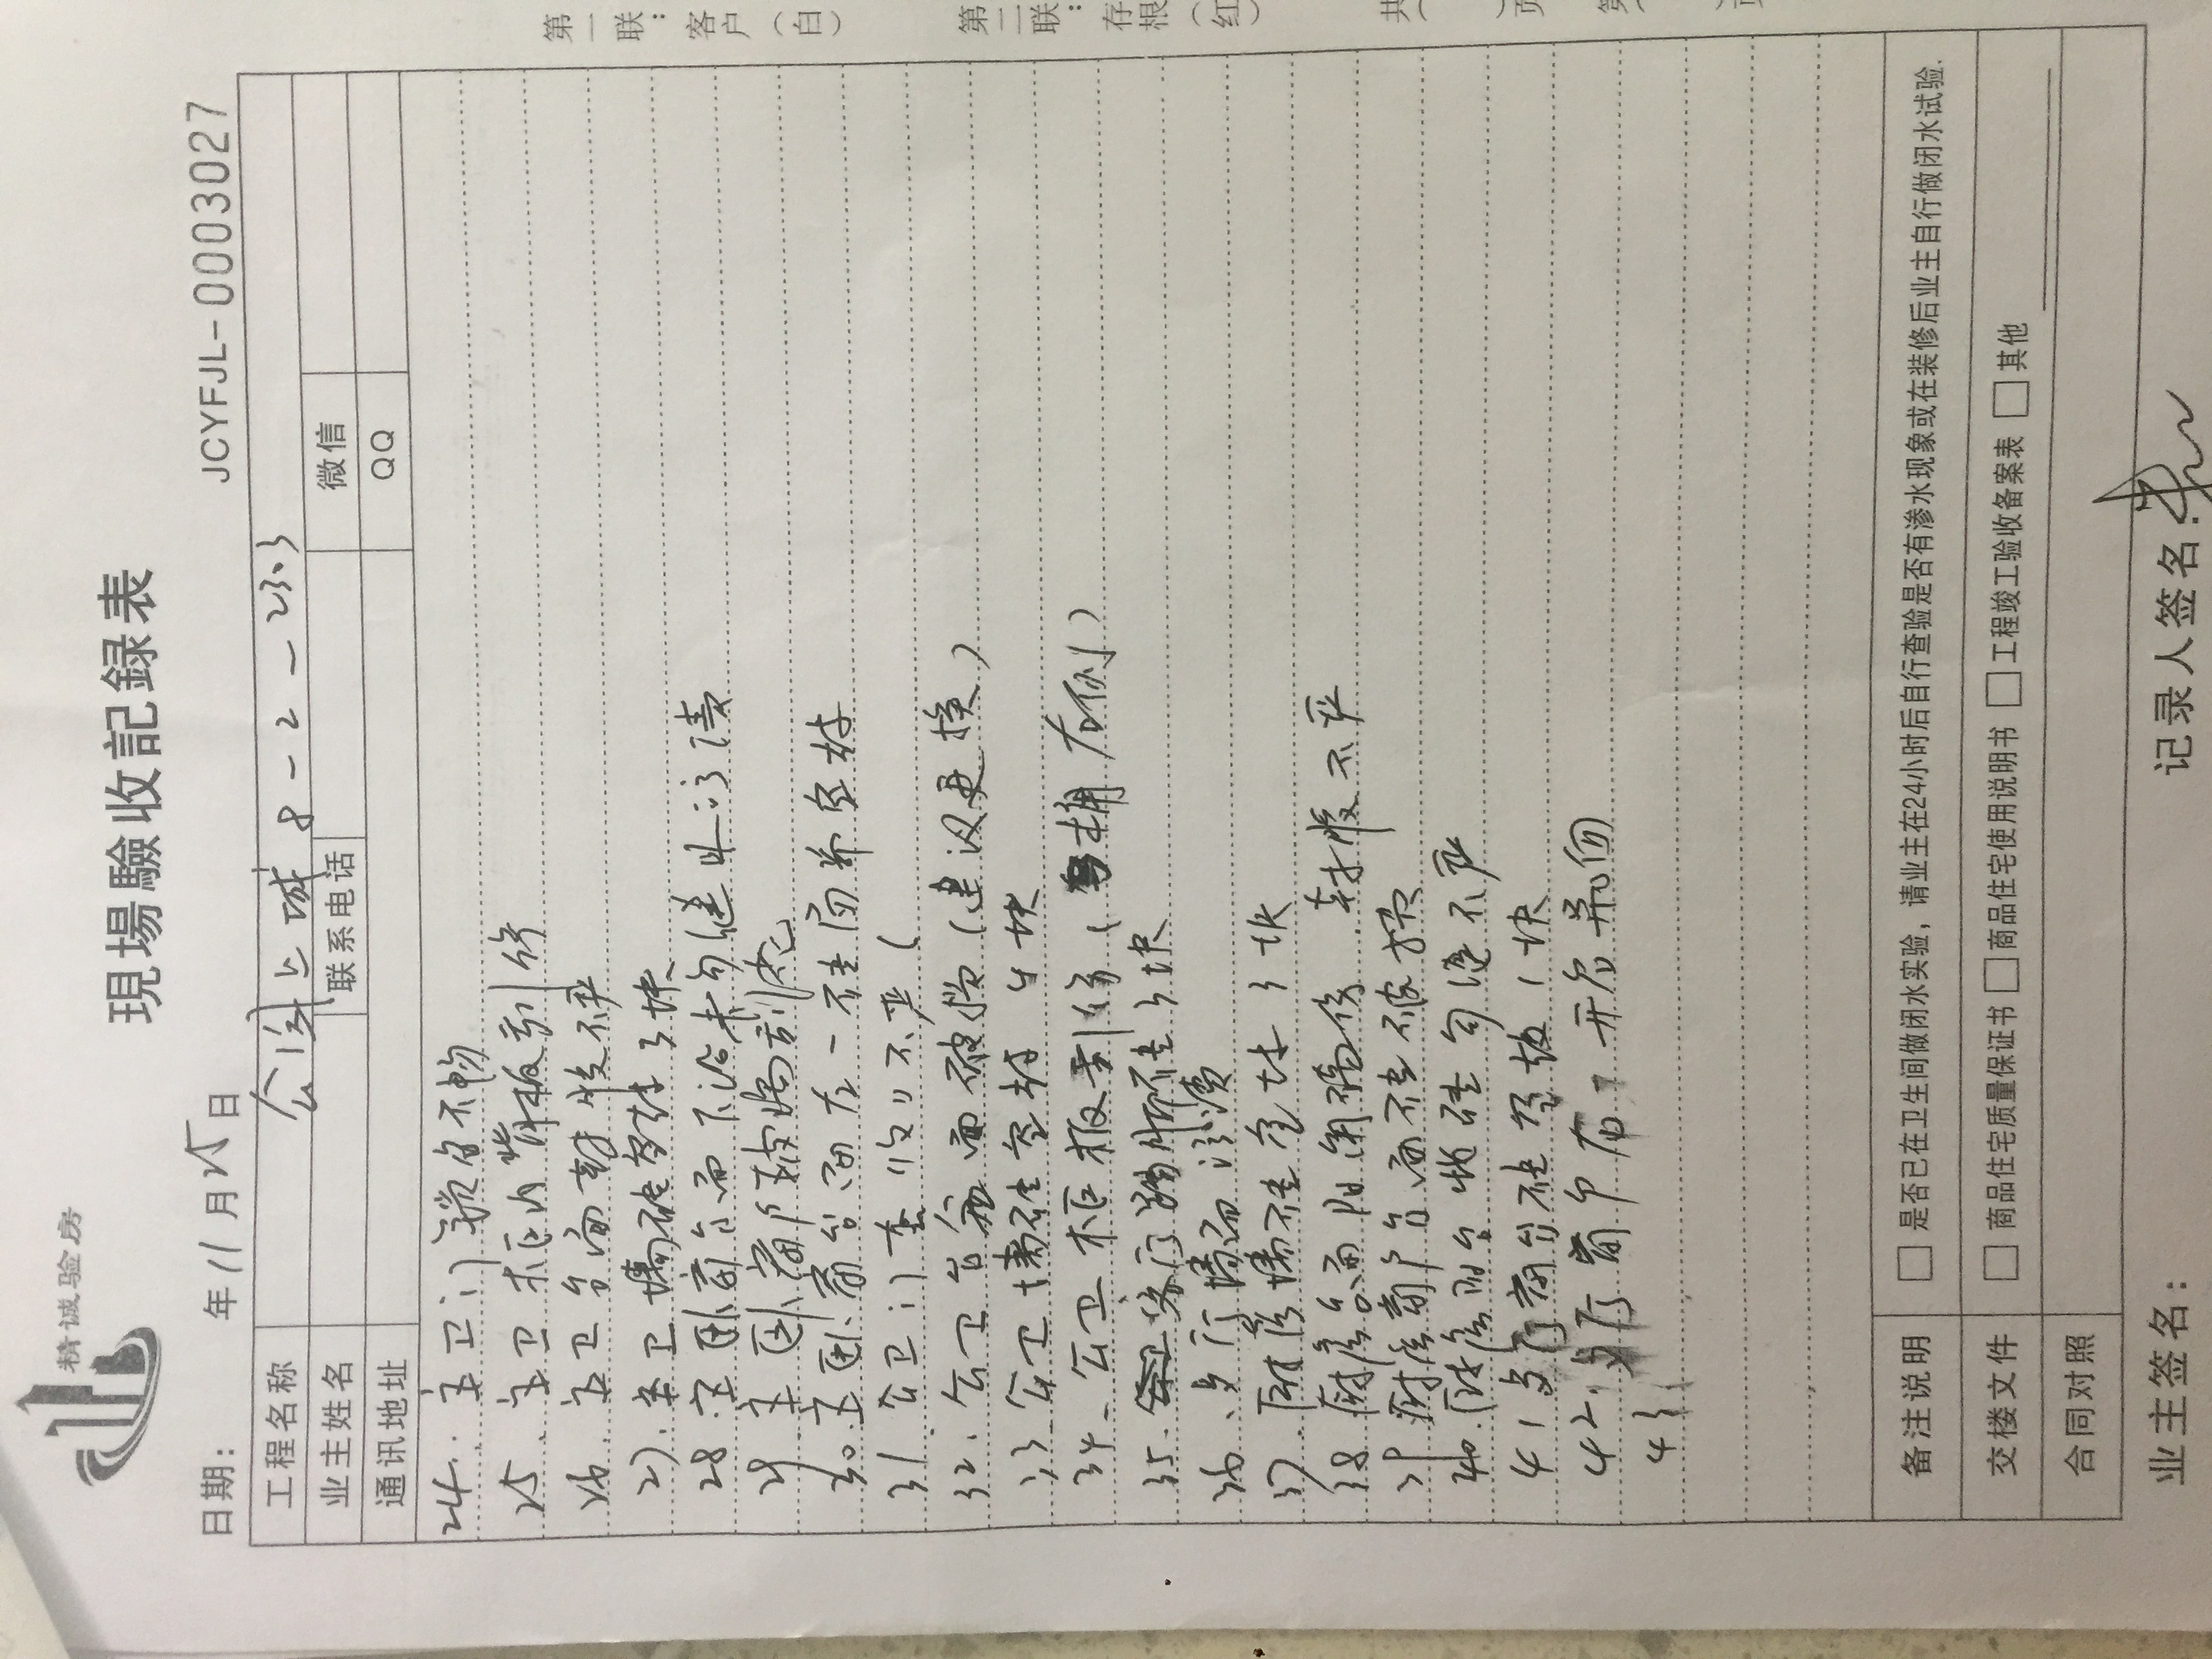 精诚验房
現場驗收記録表
日期: 年11月25日 JCYFJL-0003027
工程名称 公园上城 8-2-2303
业主姓名 联系电话 微信
通讯地址 QQ
24. 主卫门锁不畅
25. 主卫柜内背板刮伤
26. 主卫台面封胶不严
27. 主卫墙砖空鼓3块
28. 主卧窗台面下沿未勾缝且污渍
29. 主卧窗户玻璃刮花
30. 主卧窗台面左一砖局部空鼓
31. 公卫门套收口不严(
32. 公卫台盆面破损(建议更换)
33. 公卫墙砖空鼓4块
34. 公卫柜板刮伤(桶右侧)
35. 客厅踢脚砖3块
36. 客厅墙面污渍
37. 厨房墙砖空鼓3块
38 厨房台面阳角碰伤.封胶不严
39 厨房窗户台面砖破损
40. 厨房阳台地砖勾缝不严
41 客厅窗台砖空鼓1块
42. 客厅窗户右一开启异响
43.
备注说明 □ 是否已在卫生间做闭水实验，请业主在24小时后自行查验是否有渗水现象或在装修后业主自行做闭水试验.
交楼文件 □ 商品住宅质量保证书 □ 商品住宅使用说明书 □ 工程竣工验收备案表 □ 其他
合同对照
业主签名: 记录人签名:
第一联：客户（白）
第二联：存根（红）
共（ ）页 第（ ）页